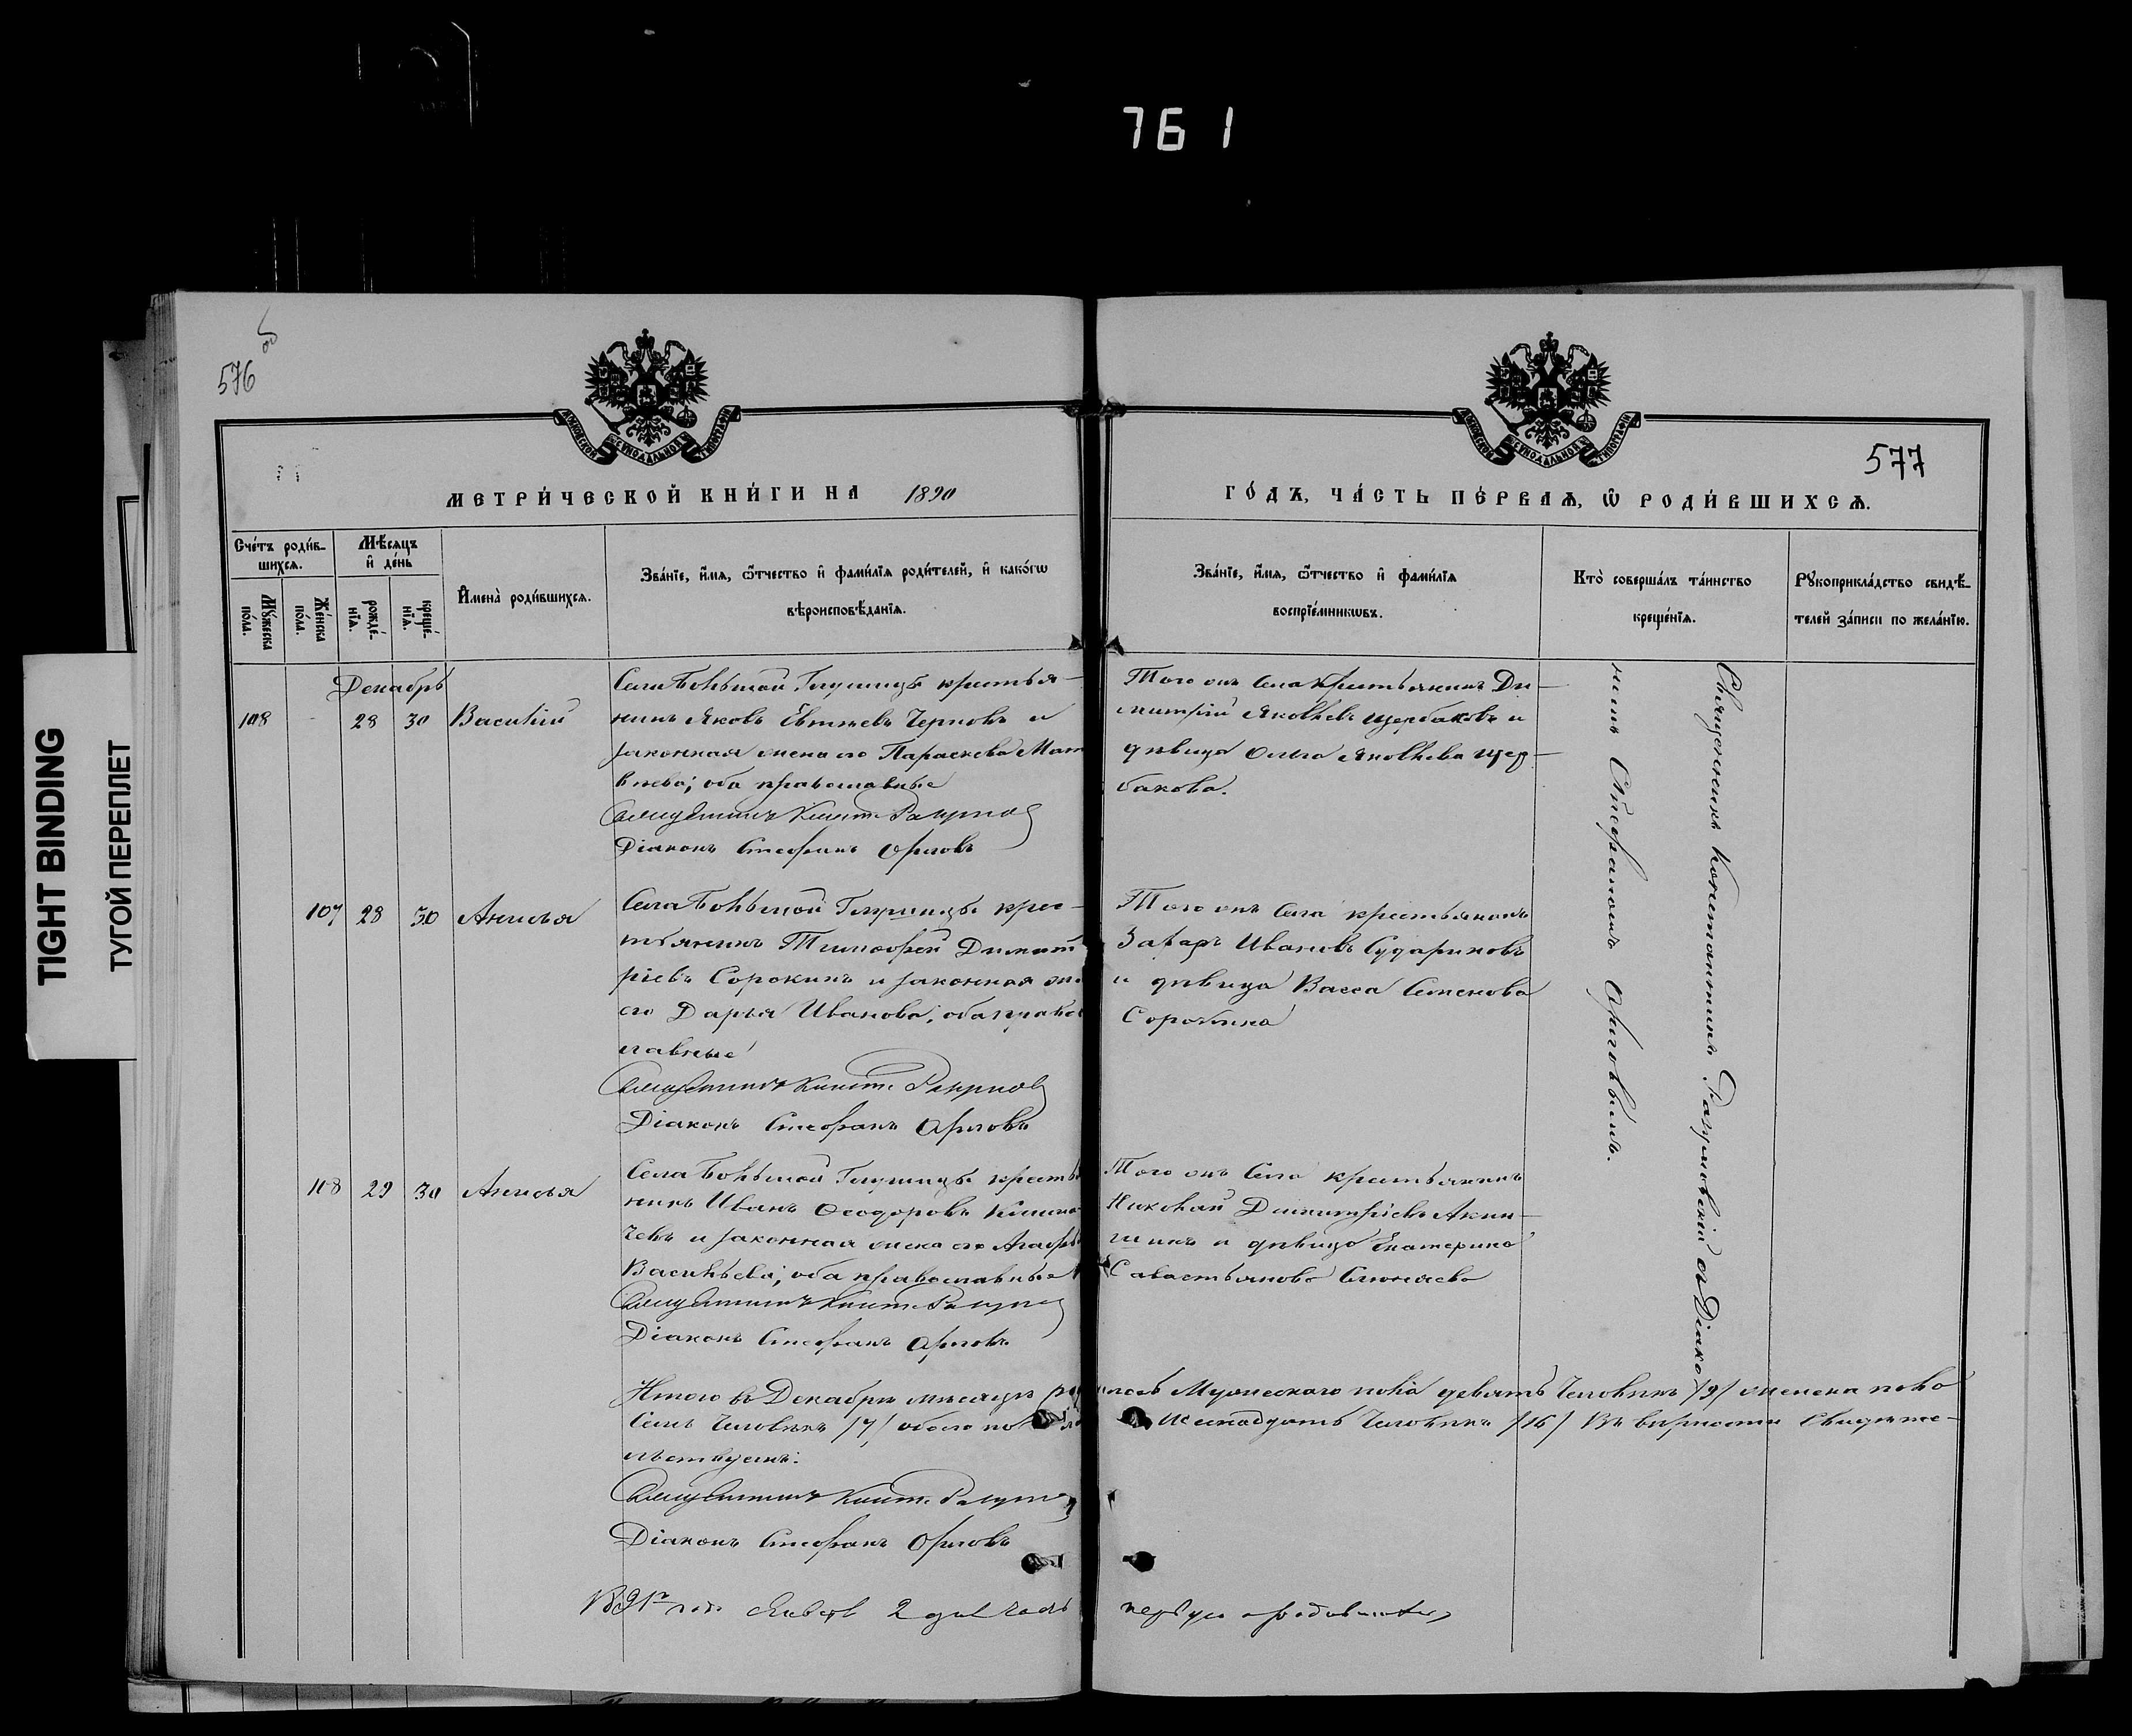 761
TIGHT BINDING
ТУГОЙ ПЕРЕПЛЕТ
576 об
577
МЕТРИ́ЧЕСКОЙ КНИ́ГИ НА 1890
ГО́ДЪ, ЧА́СТЬ ПЕ́РВАѦ, Ѡ РОДИ́ВШИХСѦ.
Сче́тъ роди́в-
шихсѧ.
Мꙋ́жеска
по́ла.
Же́нска
по́ла.
Мѣ́сѧцъ
и҆ де́нь
рожде́-
нїѧ.
креще́-
нїѧ.
И҆мена̀ роди́вшихсѧ.
Зва́нїе, и҆́мѧ, ѻ҆́тчество и҆ фами́лїѧ роди́телей, и҆ како́гѡ
вѣроисповѣ́данїѧ.
Зва́нїе, и҆́мѧ, ѻ҆́тчество и҆ фами́лїѧ
воспрїе́мникѡвъ.
Кто̀ соверша́лъ та́инство
креще́нїѧ.
Рꙋкоприкла́дство свидѣ́-
телей за́писи по жела́нїю.
Декабрь
108 28 30 Василій
Села Большой Глушицы крестья-
нинъ Яковъ Евтѣевъ Черновъ и
законная жена его Параскева Мат
вѣева; оба православные
Священникъ Конст. Разумов
Діаконъ Стефанъ Орловъ
Того жъ села крестьянинъ Ди-
митрій Яковлевъ Щербаковъ и
дѣвица Ольга Яковлева Щер-
бакова.
107 28 30 Анисья
Села Большой Глушицы крес-
тьянинъ Тимофей Димит
ріевъ Сорокинъ и законная же
его Дарья Иванова; оба правос
лавные
Священникъ Конст. Разумов
Діаконъ Стефанъ Орловъ
Того жъ села крестьянинъ
Захаръ Ивановъ Судариковъ
и дѣвица Васса Семенова
Сорокина
108 29 30 Анисья
Села Большой Глушицы крестья
нинъ Иванъ Ѳеодоровъ
чевъ и законная жена его Агафья
Васильева; оба православные
Священникъ Конст. Разумов
Діаконъ Стефанъ Орловъ
Того жъ села крестьянинъ
Николай Димитріевъ Акин-
шинъ и дѣвица Екатерина
Савастьянова
Священникъ Константинъ Разумовскій съ Діако
номъ Стефаномъ Орловымъ.
Итого въ Декабрѣ мѣсяцѣ родилось Мужескаго пола девять человѣкъ /9/ женска пола
семь человѣкъ /7/ обоего пола шестнадцать человѣкъ /16/ Въ вѣрности свидѣте-
льствуемъ:
Священникъ Конст. Разумов
Діаконъ Стефанъ Орловъ
1891го года Января 2 дня